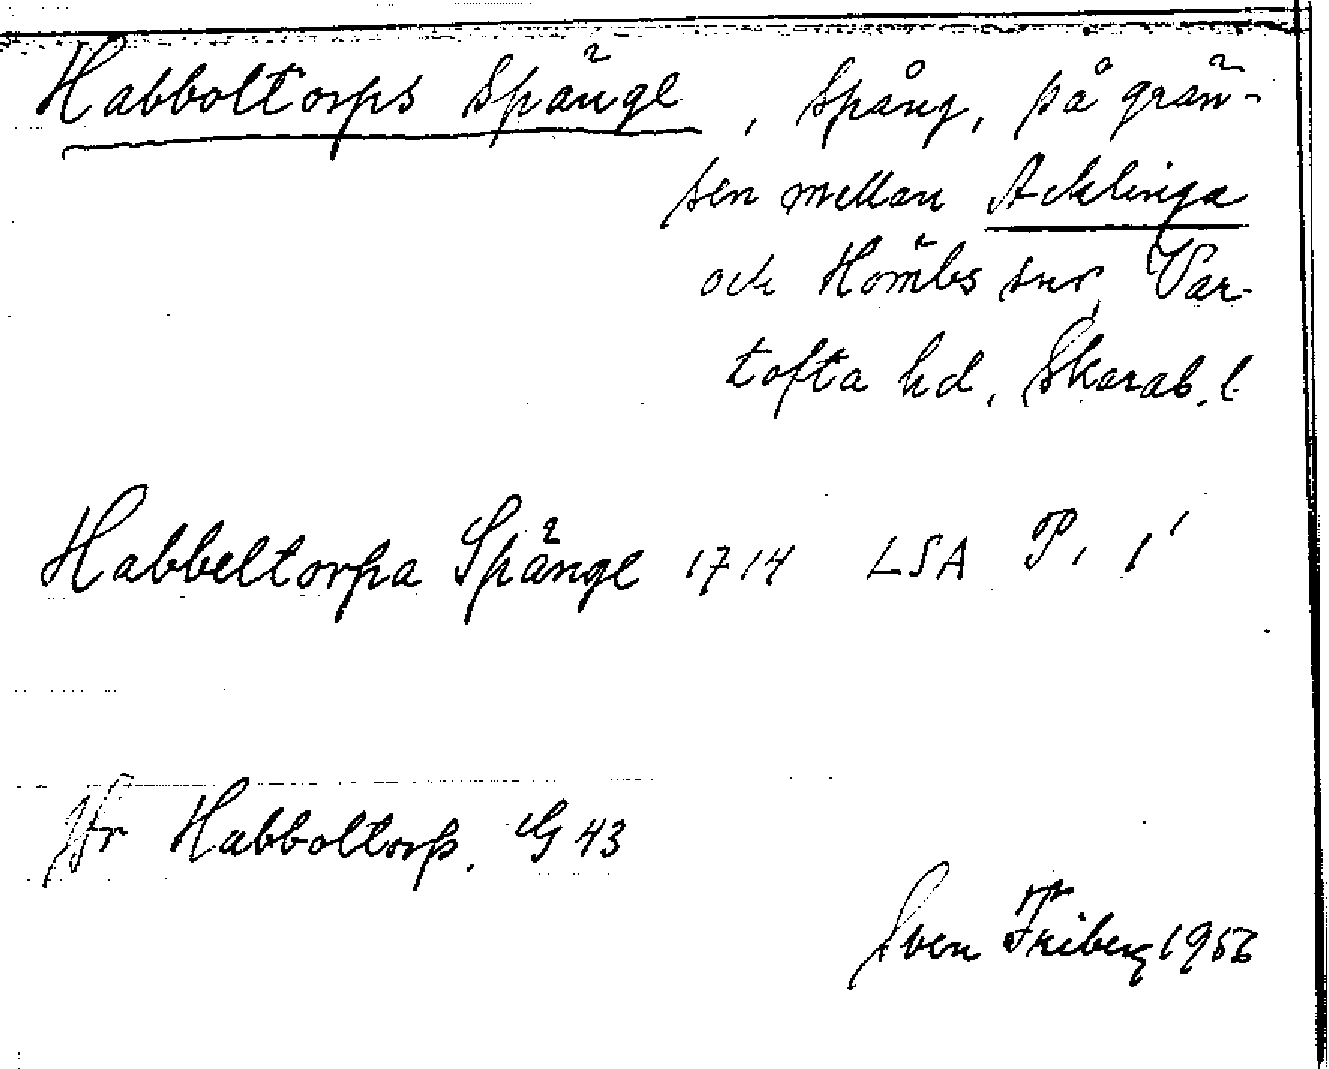 Habboltorps Spänge, spång, på grän-
sen mellan Acklinga
och Hömbs snr, Var-
tofta hd, Skarab. l
Habbeltorpa Spänge 1714 LSA P, 1'
Jfr Habboltorp. G 43
Sven Friberg 1956